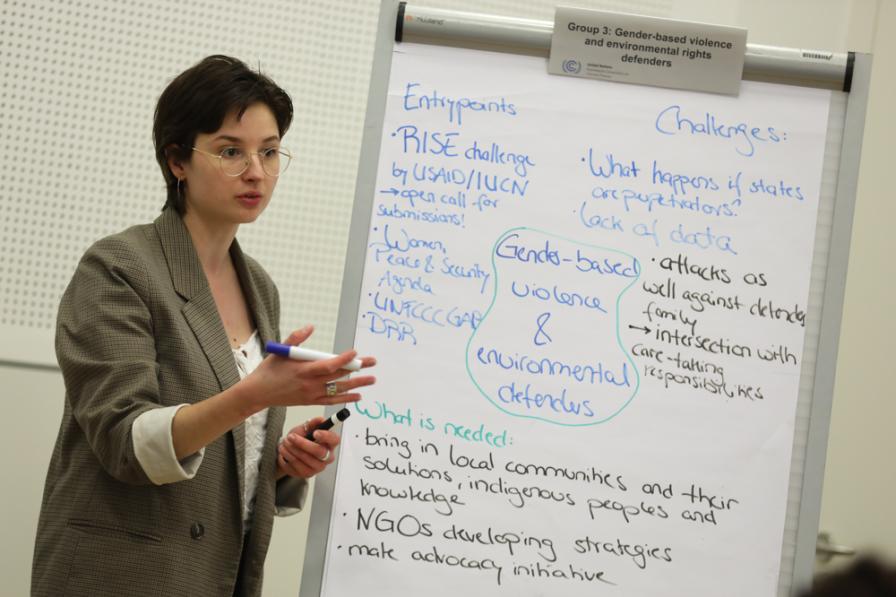 Group 3: Gender-based violence
and environmental rights
defenders
United Nations
Entrypoints
· RISE challenge
by USAID/IUCN
→ open call for
submissions!
· Women,
Peace & Security
Agenda
· UNFCCC GAP
· DRR
Challenges:
· What happens if states
are perpetrators?
· lack of data
· attacks as
well against defenders
family
→ intersection with
care-taking
responsibilities
Gender-based
violence
&
environmental
defenders
What is needed:
· bring in local communities and their
solutions, indigenous peoples and
knowledge
· NGOs developing strategies
· make advocacy initiative